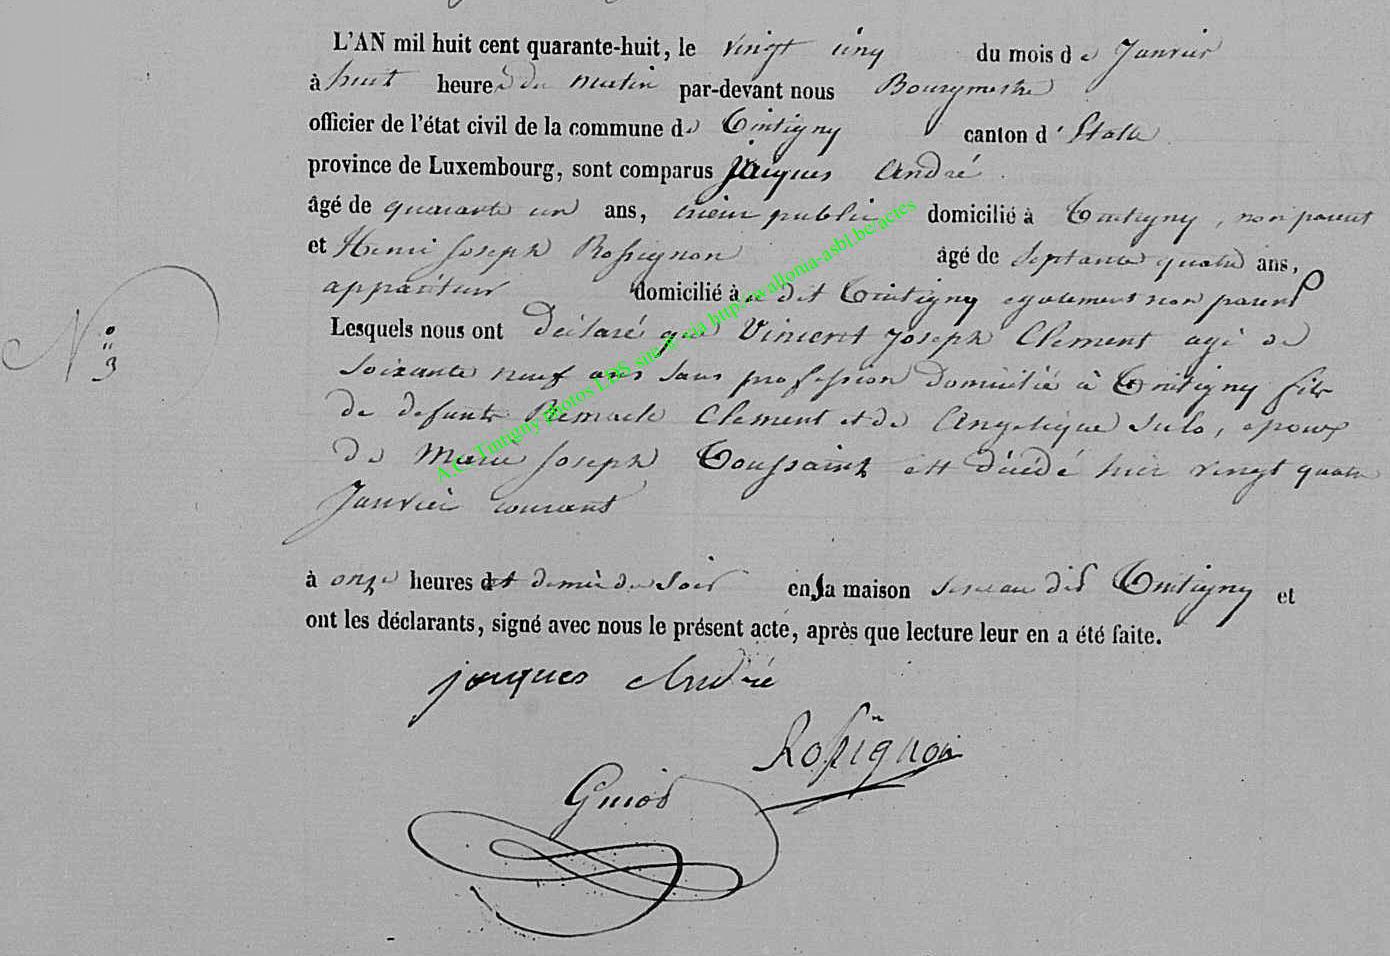 L'AN mil huit cent quarante-huit, le vingt cinq du mois de Janvier
à huit heures du matin par-devant nous Bourgmestre
officier de l'état civil de la commune de Tintigny canton d'Etalle
province de Luxembourg, sont comparus jacques André
âgé de quarante un ans, crieur public domicilié à Tintigny, non parent
et Henri Joseph Rossignon âgé de septante quatre ans,
appariteur domicilié à u dit Tintigny egalement non parent
N° 3
Lesquels nous ont déclaré que Vincent Joseph Clement agé de
soixante neuf ans sans profession domicilié à Tintigny fils
de defunts Remacle Clement et de Angelique Sulo, epoux
de Marie Joseph Toussaint est décédé hier vingt quatre
Janvier courant
à onze heures et demie du soir en sa maison au dit Tintigny et
ont les déclarants, signé avec nous le présent acte, après que lecture leur en a été faite.
jacques André
Rossignon
Guiot
A.C. Tintigny photos LDS site @ via http://wallonia-asbl.be/actes